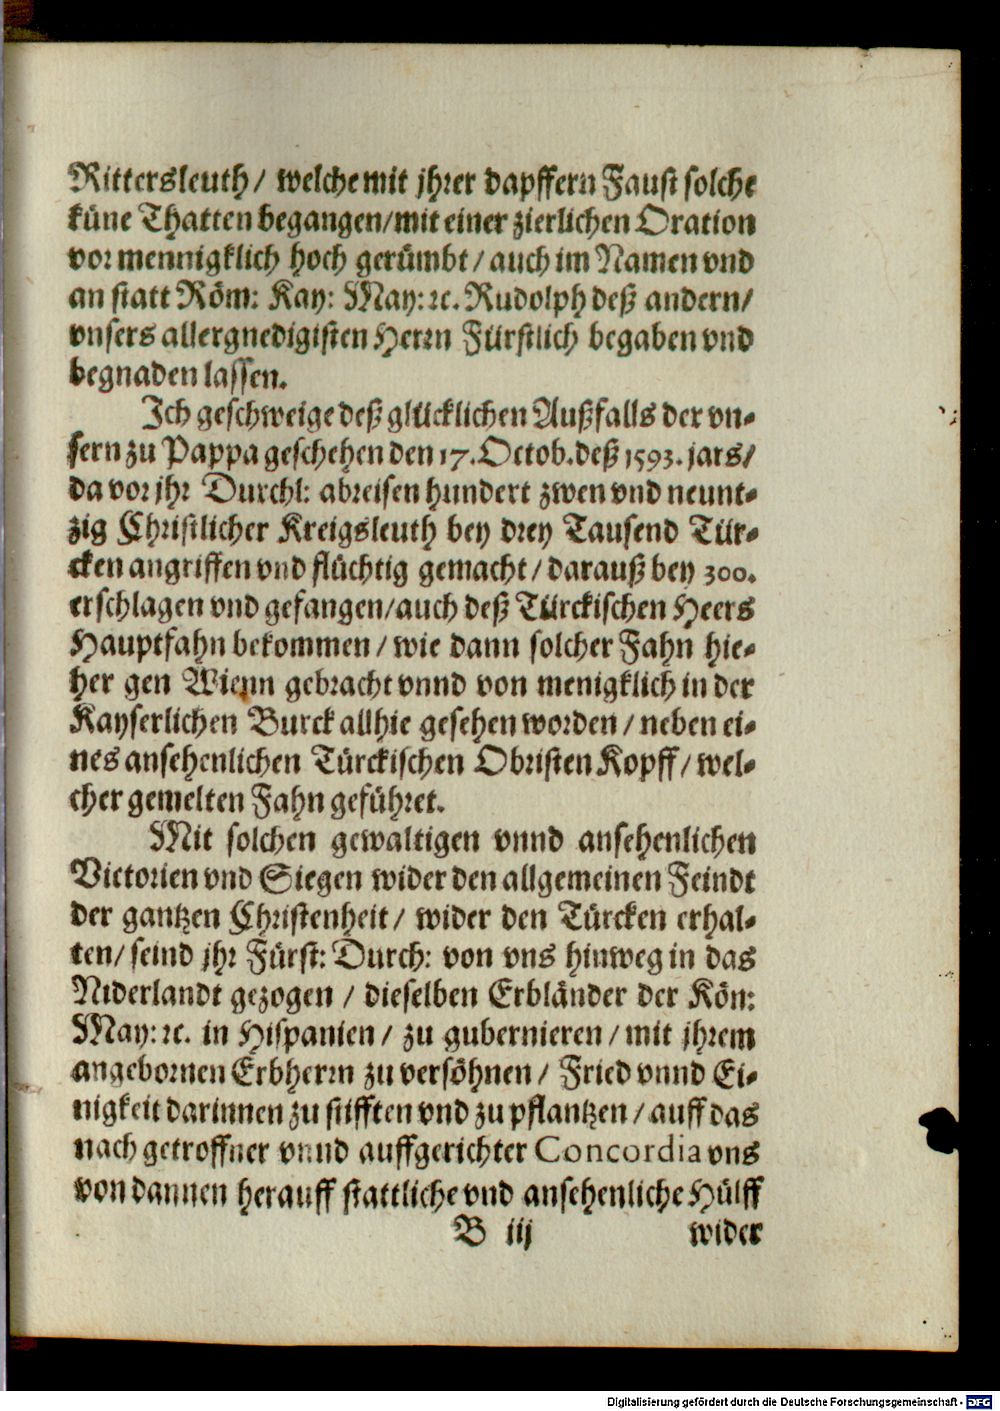 Rittersleuth / welche mit jhrer dapffern Faust solche
küne Thatten begangen/mit einer zierlichen Oration
vor mennigklich hoch gerümbt / auch im Namen vnd
an statt Röm: Kay: May: ꝛc. Rudolph deß andern/
vnsers allergnedigisten Herrn Fürstlich begaben vnd
begnaden lassen.
Ich geschweige deß glücklichen Außfalls der vn-
sern zu Pappa geschehen den 17. Octob. deß 1593. jars/
da vor jhr Durchl: abreisen hundert zwen vnd neunt-
zig Christlicher Kreigsleuth bey drey Tausend Tür-
cken angriffen vnd flüchtig gemacht / darauß bey 300.
erschlagen vnd gefangen/auch deß Türckischen Heers
Hauptfahn bekommen / wie dann solcher Fahn hie-
her gen Wienn gebracht vnnd von menigklich in der
Kayserlichen Burck allhie gesehen worden / neben ei-
nes ansehenlichen Türckischen Obristen Kopff / wel-
cher gemelten Fahn geführet.
Mit solchen gewaltigen vnnd ansehenlichen
Victorien vnd Siegen wider den allgemeinen Feindt
der gantzen Christenheit / wider den Türcken erhal-
ten/ seind jhr Fürst: Durch: von vns hinweg in das
Niderlandt gezogen / dieselben Erbländer der Kön:
May: ꝛc. in Hispanien / zu gubernieren / mit jhrem
angebornen Erbherrn zu versöhnen / Fried vnnd Ei-
nigkeit darinnen zu stifften vnd zu pflantzen / auff das
nach getroffner vnnd auffgerichter Concordia vns
von dannen herauff stattliche vnd ansehenliche Hülff
B iij wider
Digitalisierung gefördert durch die Deutsche Forschungsgemeinschaft - DFG